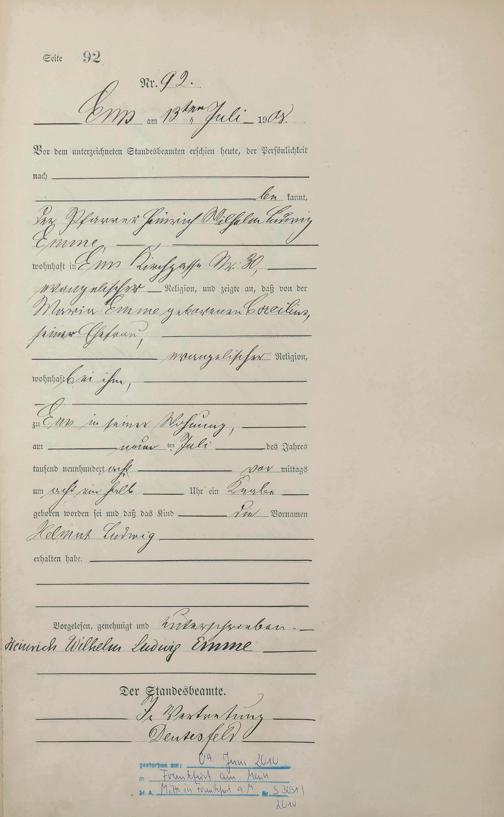 Seite 92
Nr. 92.
Ems am 13ten Juli 1908.
Vor dem unterzeichneten Standesbeamten erschien heute, der Persönlichkeit
nach
be kannt,
der Pfarrer Heinrich Wilhelm Ludwig
Emme
wohnhaft in Ems Kirchgasse Nr. 30,
evangelischer Religion, und zeigte an, daß von der
Maria Emme geborenen Caecilius,
seiner Ehefrau,
evangelischer Religion,
wohnhaft bei ihm,
zu Ems in seiner Wohnung,
am neun ten Juli des Jahres
tausend neunhundert acht vor mittags
um acht ein halb Uhr ein Knabe
geboren worden sei und daß das Kind die Vornamen
Helmut Ludwig
erhalten habe.
Vorgelesen, genehmigt und unterschrieben.
Heinrich Wilhelm Ludwig Emme
Der Standesbeamte.
In Vertretung
gestorben am: 09. Juni 2010
in Frankfurt am Main
St. A. Mitte in Frankfurt a. M. Nr. S 3031/
2010